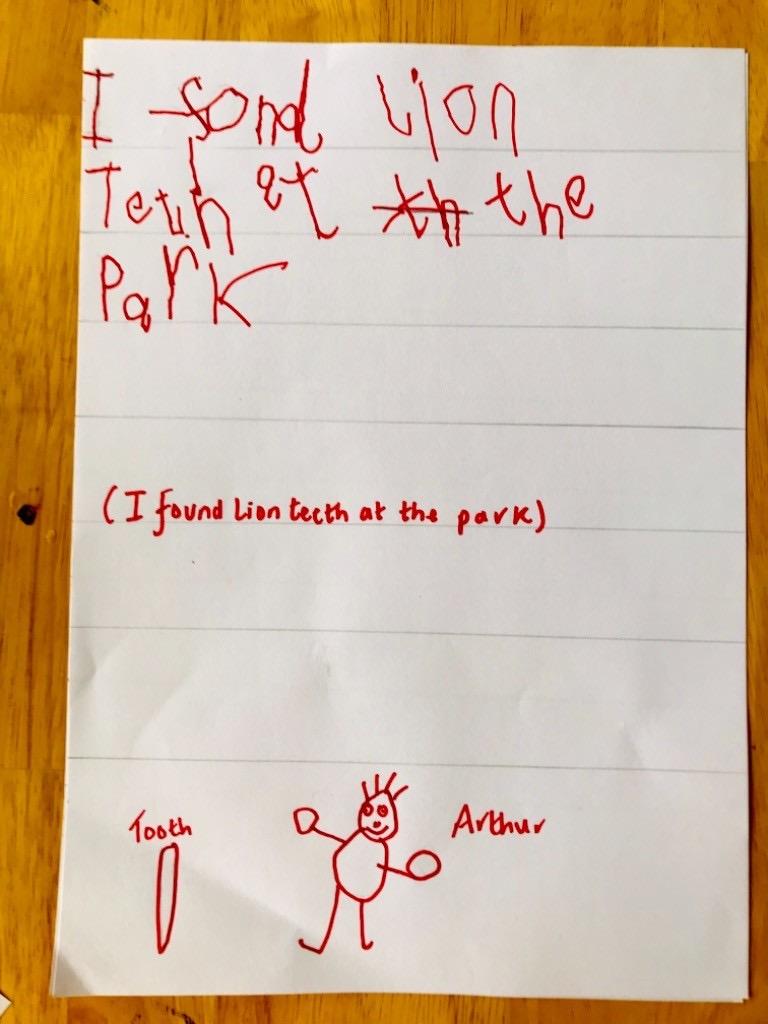 I fond Lion
Teth at th the
Park
(I found Lion teeth at the park)
Tooth
Arthur